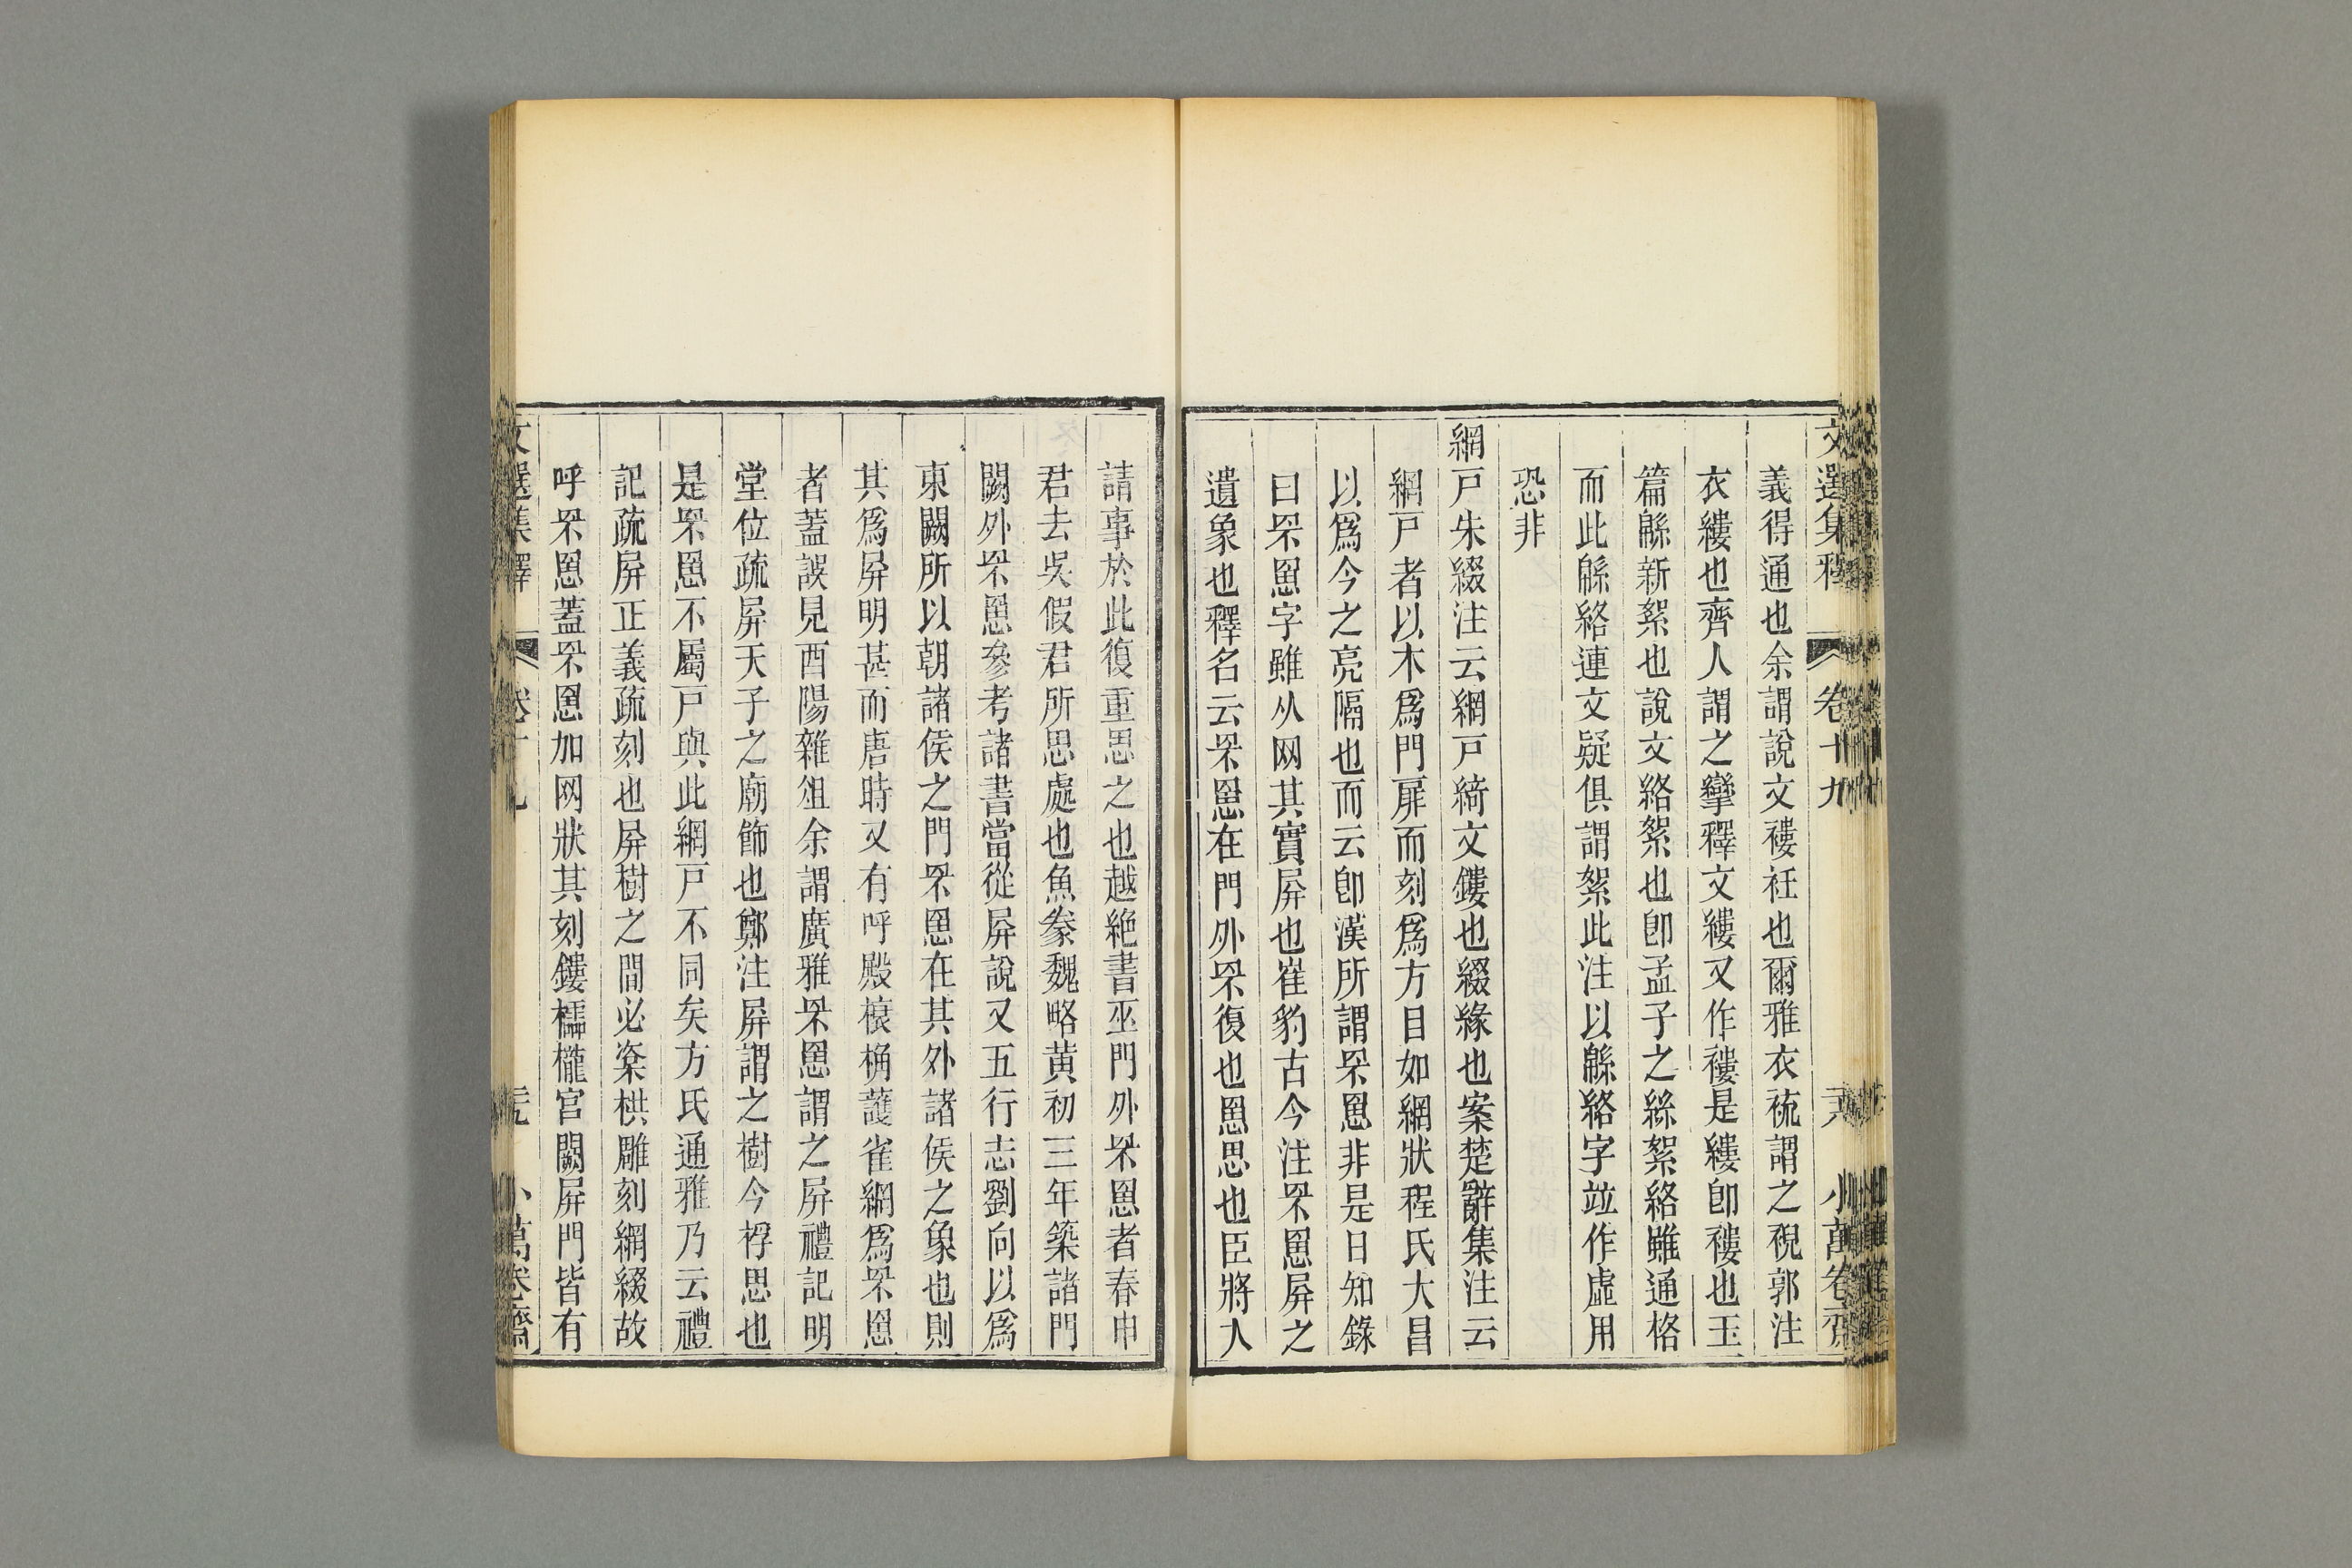 文選集釋 卷十九 六 小萬卷齋
義得通也余謂說文褸衽也爾雅衣裗謂之祝郭注
衣縷也齊人謂之攣釋文縷又作褸是縷卽褸也玉
篇緜新絮也說文絡絮也卽孟子之絲絮絡雖通格
而此緜絡連文疑俱謂絮此注以緜絡字竝作虛用
恐非
網戸朱綴注云網戸綺文鏤也綴緣也案楚辭集注云
網戸者以木爲門扉而刻爲方目如網狀程氏大昌
以爲今之亮隔也而云卽漢所謂罘罳非是日知錄
曰罘罳字雖从网其實屛也崔豹古今注罘罳屛之
遺象也釋名云罘罳在門外罘復也罳思也臣將入
請事於此復重思之也越絕書巫門外罘罳者春申
君去吳假君所思處也魚豢魏略黃初三年築諸門
闕外罘罳參考諸書當從屛說又五行志劉向以爲
東闕所以朝諸侯之門罘罳在其外諸侯之象也則
其爲屛明甚而唐時又有呼殿榱桷護雀網爲罘罳
者蓋誤見酉陽雜俎余謂廣雅罘罳謂之屛禮記明
堂位疏屛天子之廟飾也鄭注屛謂之樹今桴思也
是罘罳不屬戸與此網戸不同矣方氏通雅乃云禮
記疏屛正義疏刻也屛樹之間必楶栱雕刻網綴故
呼罘罳蓋罘罳加网狀其刻鏤櫺櫳宮闕屛門皆有
文選集釋 卷十九 小萬卷齋